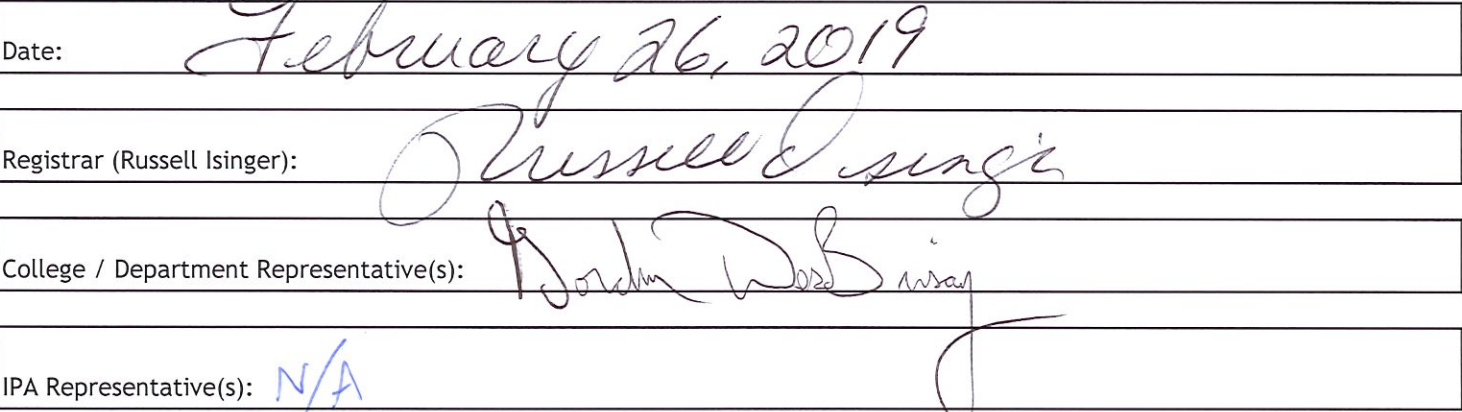 Date: February 26, 2019
Registrar (Russell Isinger): Russell Isinger
College / Department Representative(s): Gordon DesBrisay
IPA Representative(s): N/A